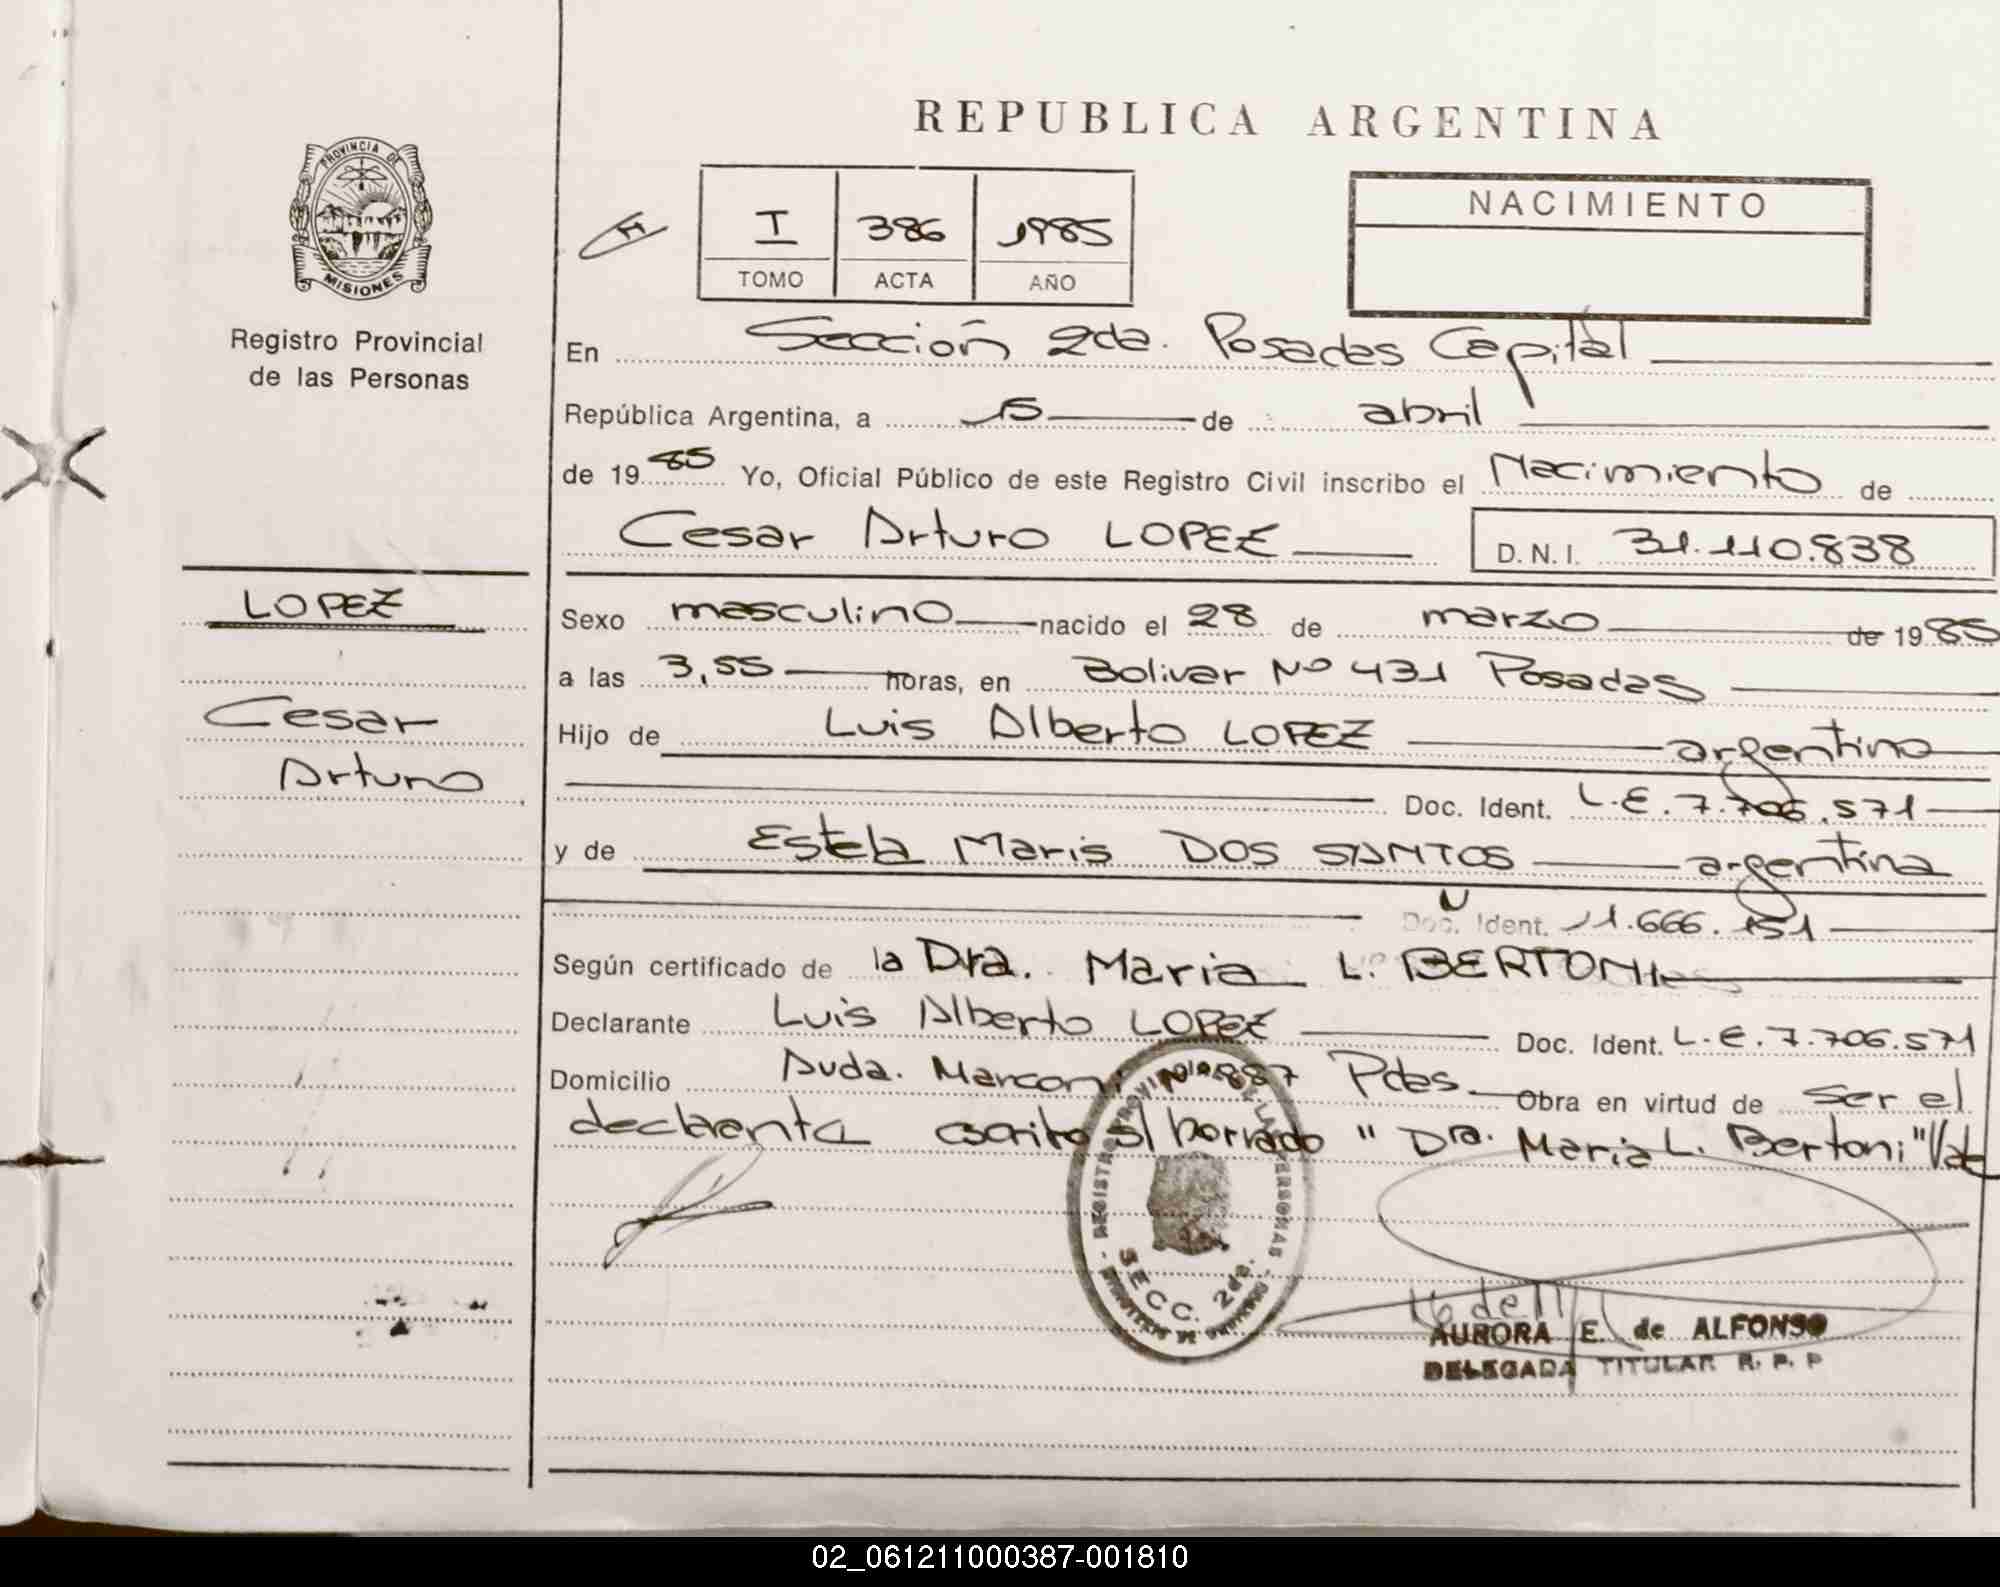 REPUBLICA ARGENTINA
PROVINCIA DE
MISIONES
Registro Provincial
de las Personas
I 386 1985
TOMO ACTA AÑO
NACIMIENTO
En Sección 2da. Posadas Capital
República Argentina, a 15 de abril
de 1985 Yo, Oficial Público de este Registro Civil inscribo el Nacimiento de
Cesar Arturo LOPEZ D.N.I. 31.110.838
LOPEZ
Cesar
Arturo
Sexo masculino nacido el 28 de marzo de 1985
a las 3,55 horas, en Bolivar Nº 431 Posadas
Hijo de Luis Alberto LOPEZ argentino
Doc. Ident. L.E. 7.706.571
y de Estela Maris DOS SANTOS argentina
Doc. Ident. 11.666.151
Según certificado de la Dra. Maria L. BERTONI
Declarante Luis Alberto LOPEZ Doc. Ident. L.E. 7.706.571
Domicilio Avda. Marconi Nº 887 Pdas. Obra en virtud de ser el
declarente escrito s/ borrado "Dra. Maria L. Bertoni" Vale
REGISTRO PROVINCIAL DE LAS PERSONAS
SECC. 2da.
AURORA E. de ALFONSO
DELEGADA TITULAR R. P. P
02_061211000387-001810